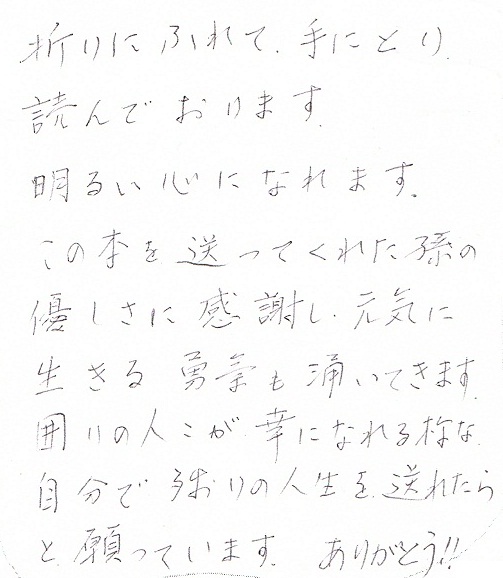 折りにふれて、手にとり
読んでおります。
明るい心になれます。
この本を送ってくれた孫の
優しさに感謝し、元気に
生きる勇気も涌いてきます。
囲りの人々が幸になれる様な
自分で残りの人生を送れたら
と願っています。 ありがとう!!